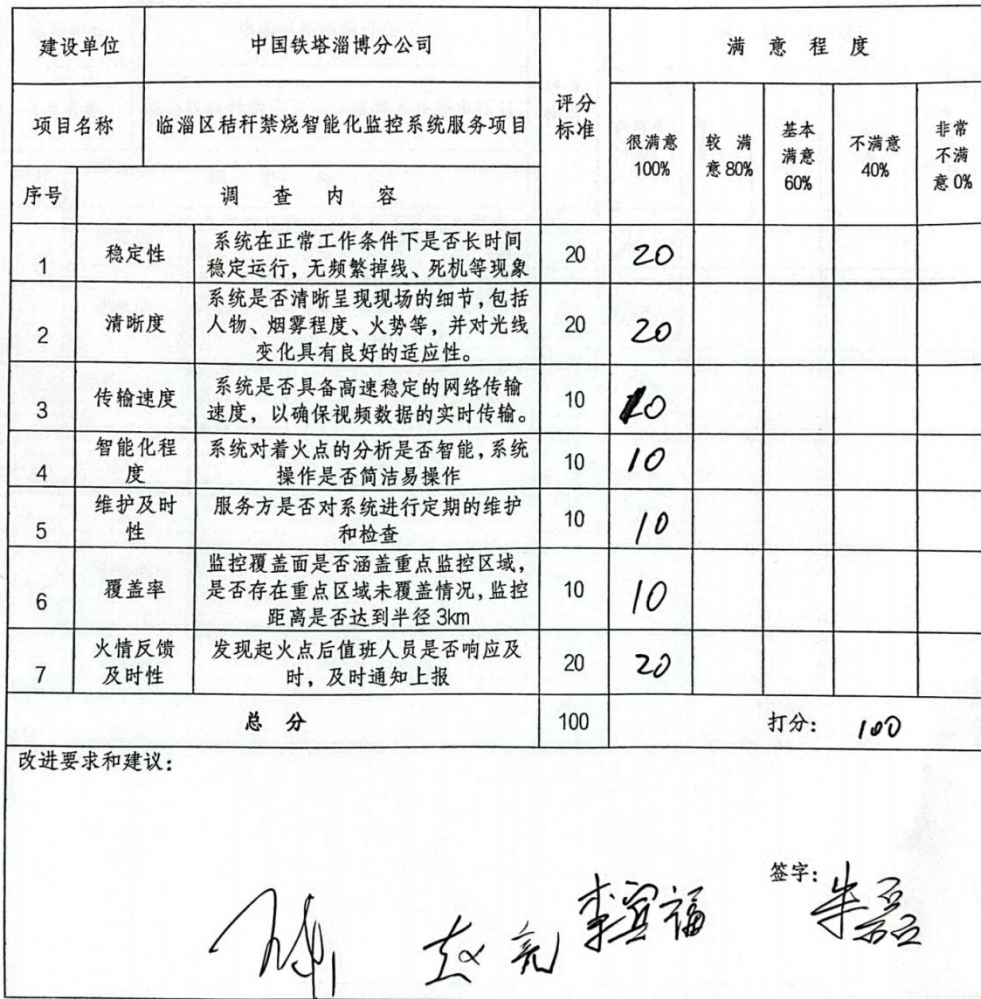 建设单位 中国铁塔淄博分公司 评分标准 满意程度
项目名称 临淄区秸秆禁烧智能化监控系统服务项目 很满意100% 较满意80% 基本满意60% 不满意40% 非常不满意0%
序号 调查内容
1 稳定性 系统在正常工作条件下是否长时间稳定运行,无频繁掉线、死机等现象 20 20
2 清晰度 系统是否清晰呈现现场的细节,包括人物、烟雾程度、火势等,并对光线变化具有良好的适应性。 20 20
3 传输速度 系统是否具备高速稳定的网络传输速度,以确保视频数据的实时传输。 10 10
4 智能化程度 系统对着火点的分析是否智能,系统操作是否简洁易操作 10 10
5 维护及时性 服务方是否对系统进行定期的维护和检查 10 10
6 覆盖率 监控覆盖面是否涵盖重点监控区域,是否存在重点区域未覆盖情况,监控距离是否达到半径3km 10 10
7 火情反馈及时性 发现起火点后值班人员是否响应及时,及时通知上报 20 20
总分 100 打分: 100
改进要求和建议:
签字:
赵亮 李宜福 朱磊